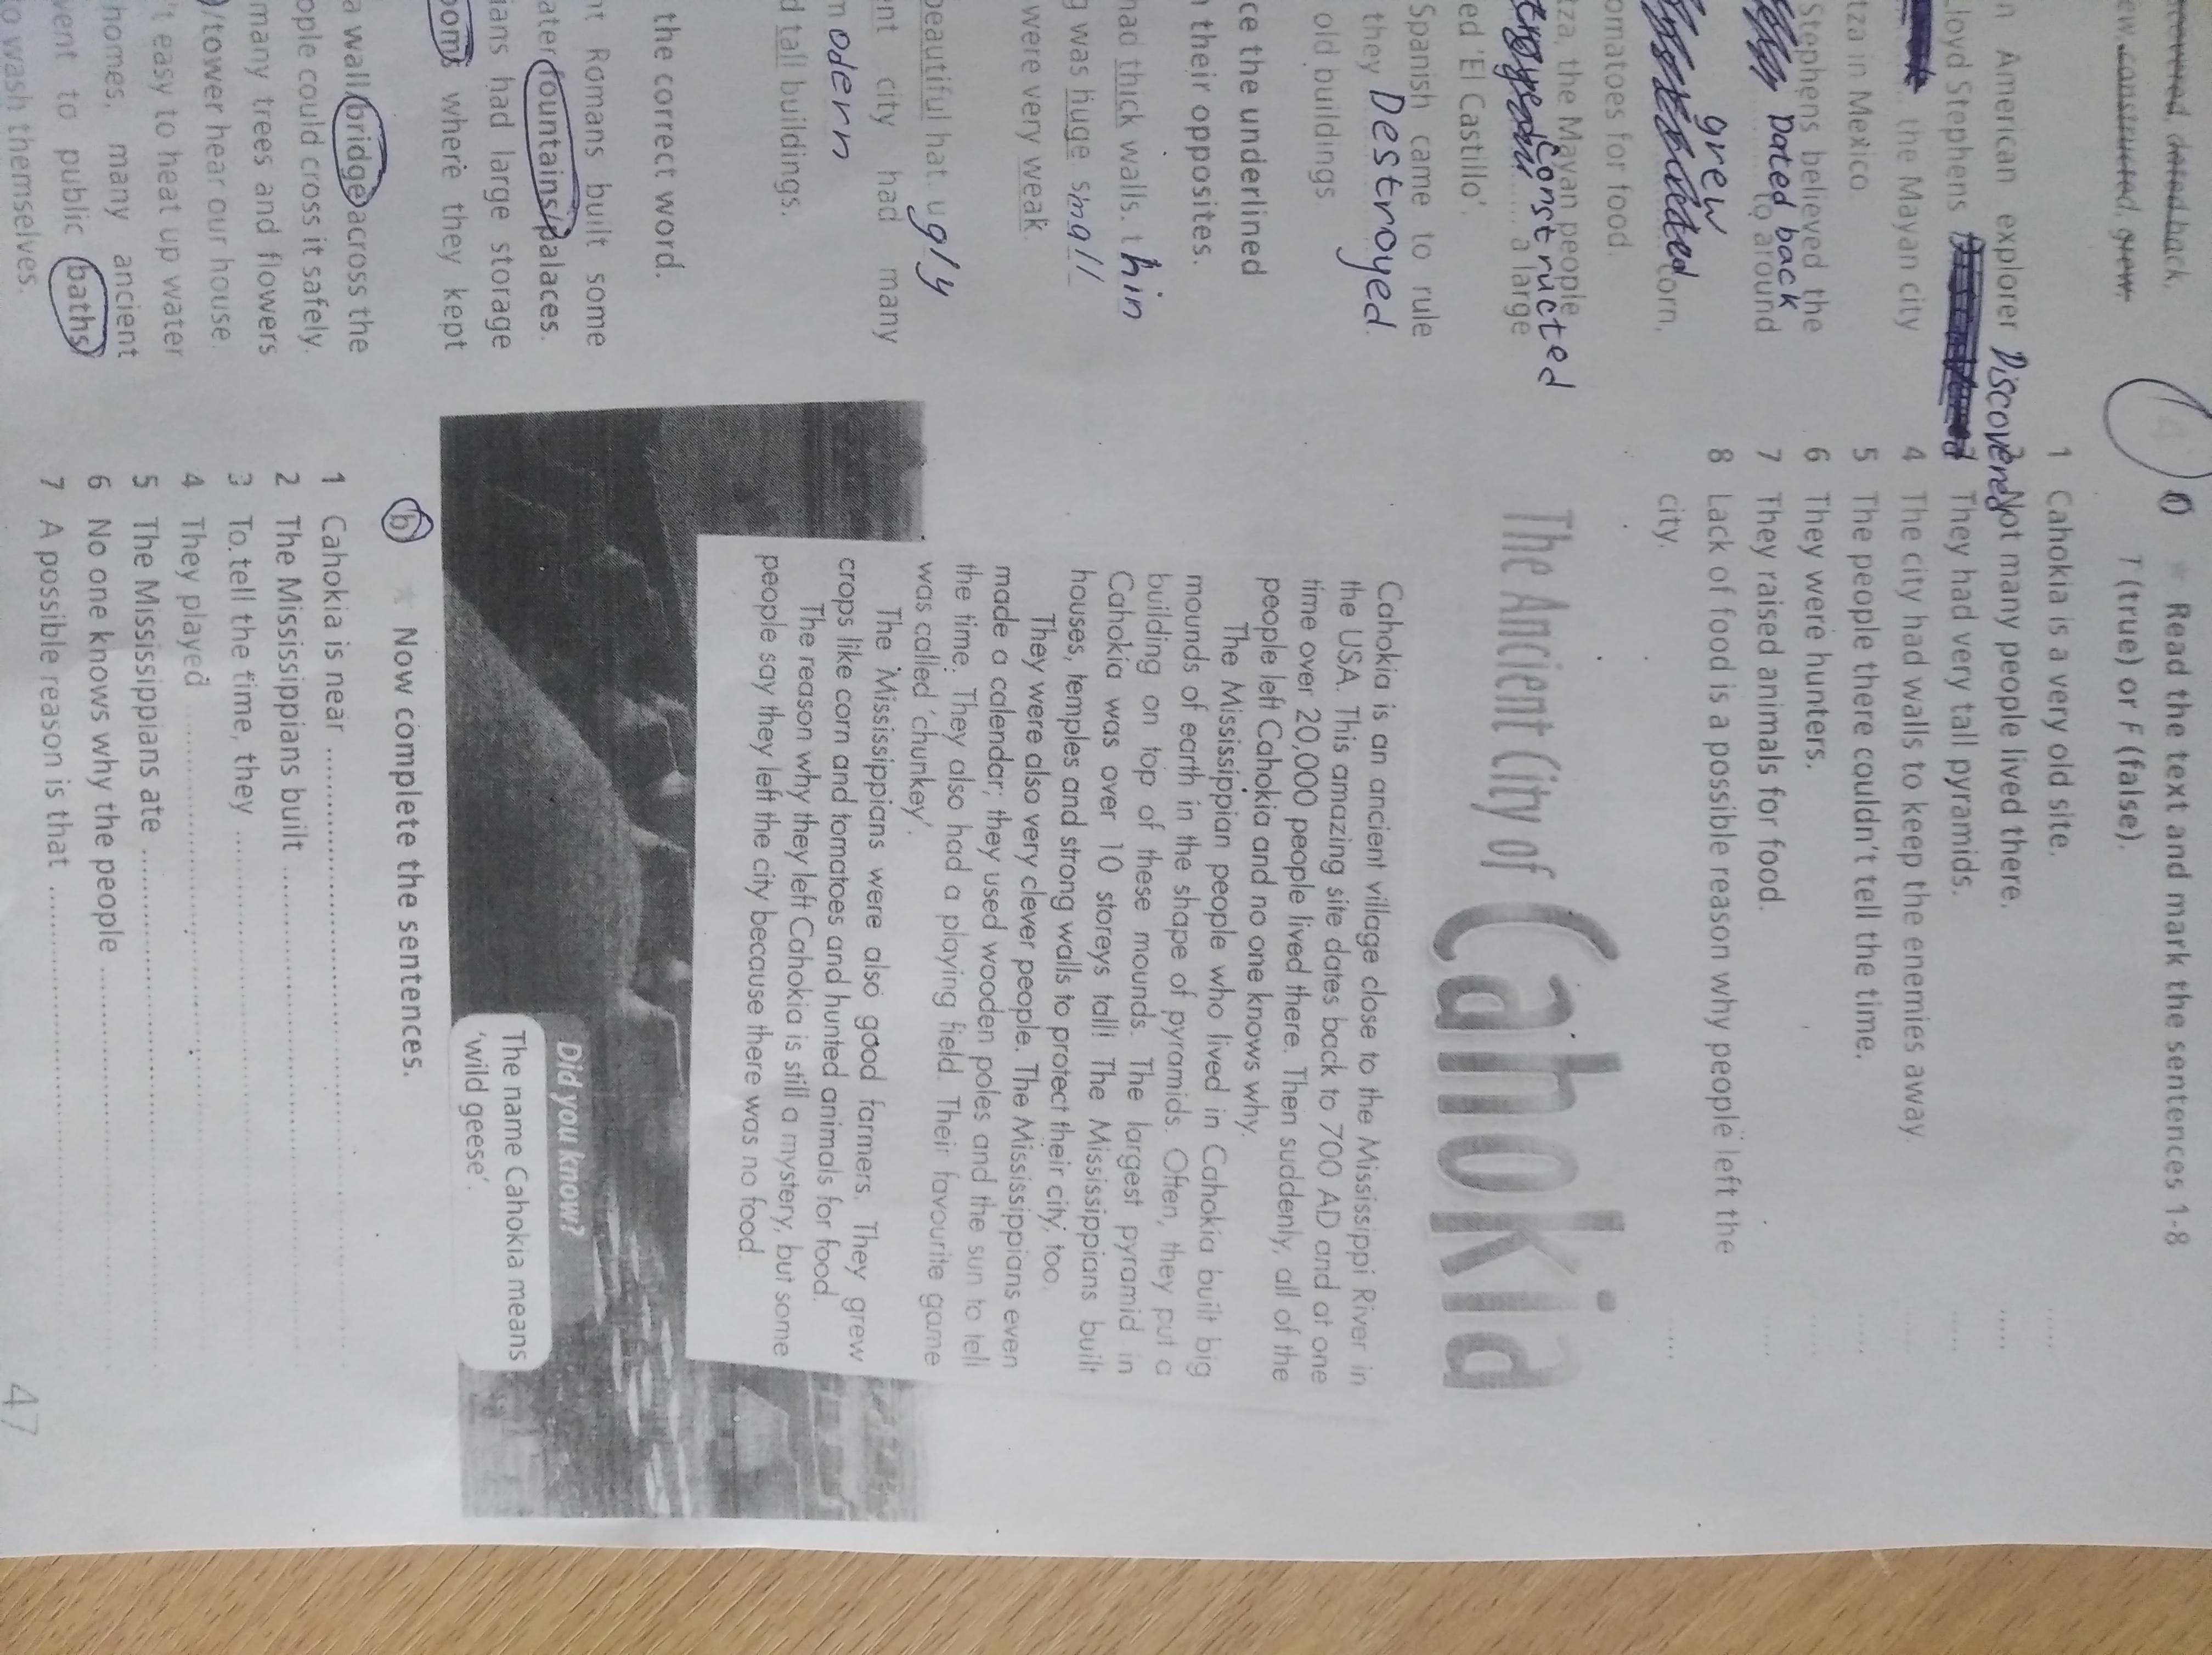 discovered, dated back,
constructed, grew,
n American explorer Discovered
loyd Stephens
the Mayan city
tza in Mexico.
Stephens believed the
Dated back
to around
grew
corn,
omatoes for food.
tza, the Mayan people
constructed
a large
ed 'El Castillo'.
Spanish came to rule
they Destroyed
old buildings
ce the underlined
their opposites.
had thick walls. thin
was huge small
were very weak.
beautiful hat. ugly
ent city had many
modern
d tall buildings.
the correct word.
nt Romans built some
ater fountains/palaces.
ians had large storage
ooms where they kept
a wall/bridge across the
ople could cross it safely.
many trees and flowers
/tower near our house.
't easy to heat up water
homes, many ancient
vent to public baths/
to wash themselves.
14
Read the text and mark the sentences 1-8
T (true) or F (false).
1 Cahokia is a very old site. .....
Not many people lived there. .....
They had very tall pyramids. .....
4 The city had walls to keep the enemies away. .....
5 The people there couldn't tell the time. .....
6 They were hunters. .....
7 They raised animals for food. .....
8 Lack of food is a possible reason why people left the
city. .....
The Ancient City of Cahokia
Cahokia is an ancient village close to the Mississippi River in
the USA. This amazing site dates back to 700 AD and at one
time over 20,000 people lived there. Then suddenly, all of the
people left Cahokia and no one knows why.
The Mississippian people who lived in Cahokia built big
mounds of earth in the shape of pyramids. Often, they put a
building on top of these mounds. The largest pyramid in
Cahokia was over 10 storeys tall! The Mississippians built
houses, temples and strong walls to protect their city, too.
They were also very clever people. The Mississippians even
made a calendar; they used wooden poles and the sun to tell
the time. They also had a playing field. Their favourite game
was called 'chunkey'.
The Mississippians were also good farmers. They grew
crops like corn and tomatoes and hunted animals for food.
The reason why they left Cahokia is still a mystery, but some
people say they left the city because there was no food.
Did you know?
The name Cahokia means
'wild geese'.
b Now complete the sentences.
1 Cahokia is near ..........
2 The Mississippians built ..........
3 To tell the time, they ..........
4 They played ..........
5 The Mississippians ate ..........
6 No one knows why the people ..........
7 A possible reason is that ..........
47